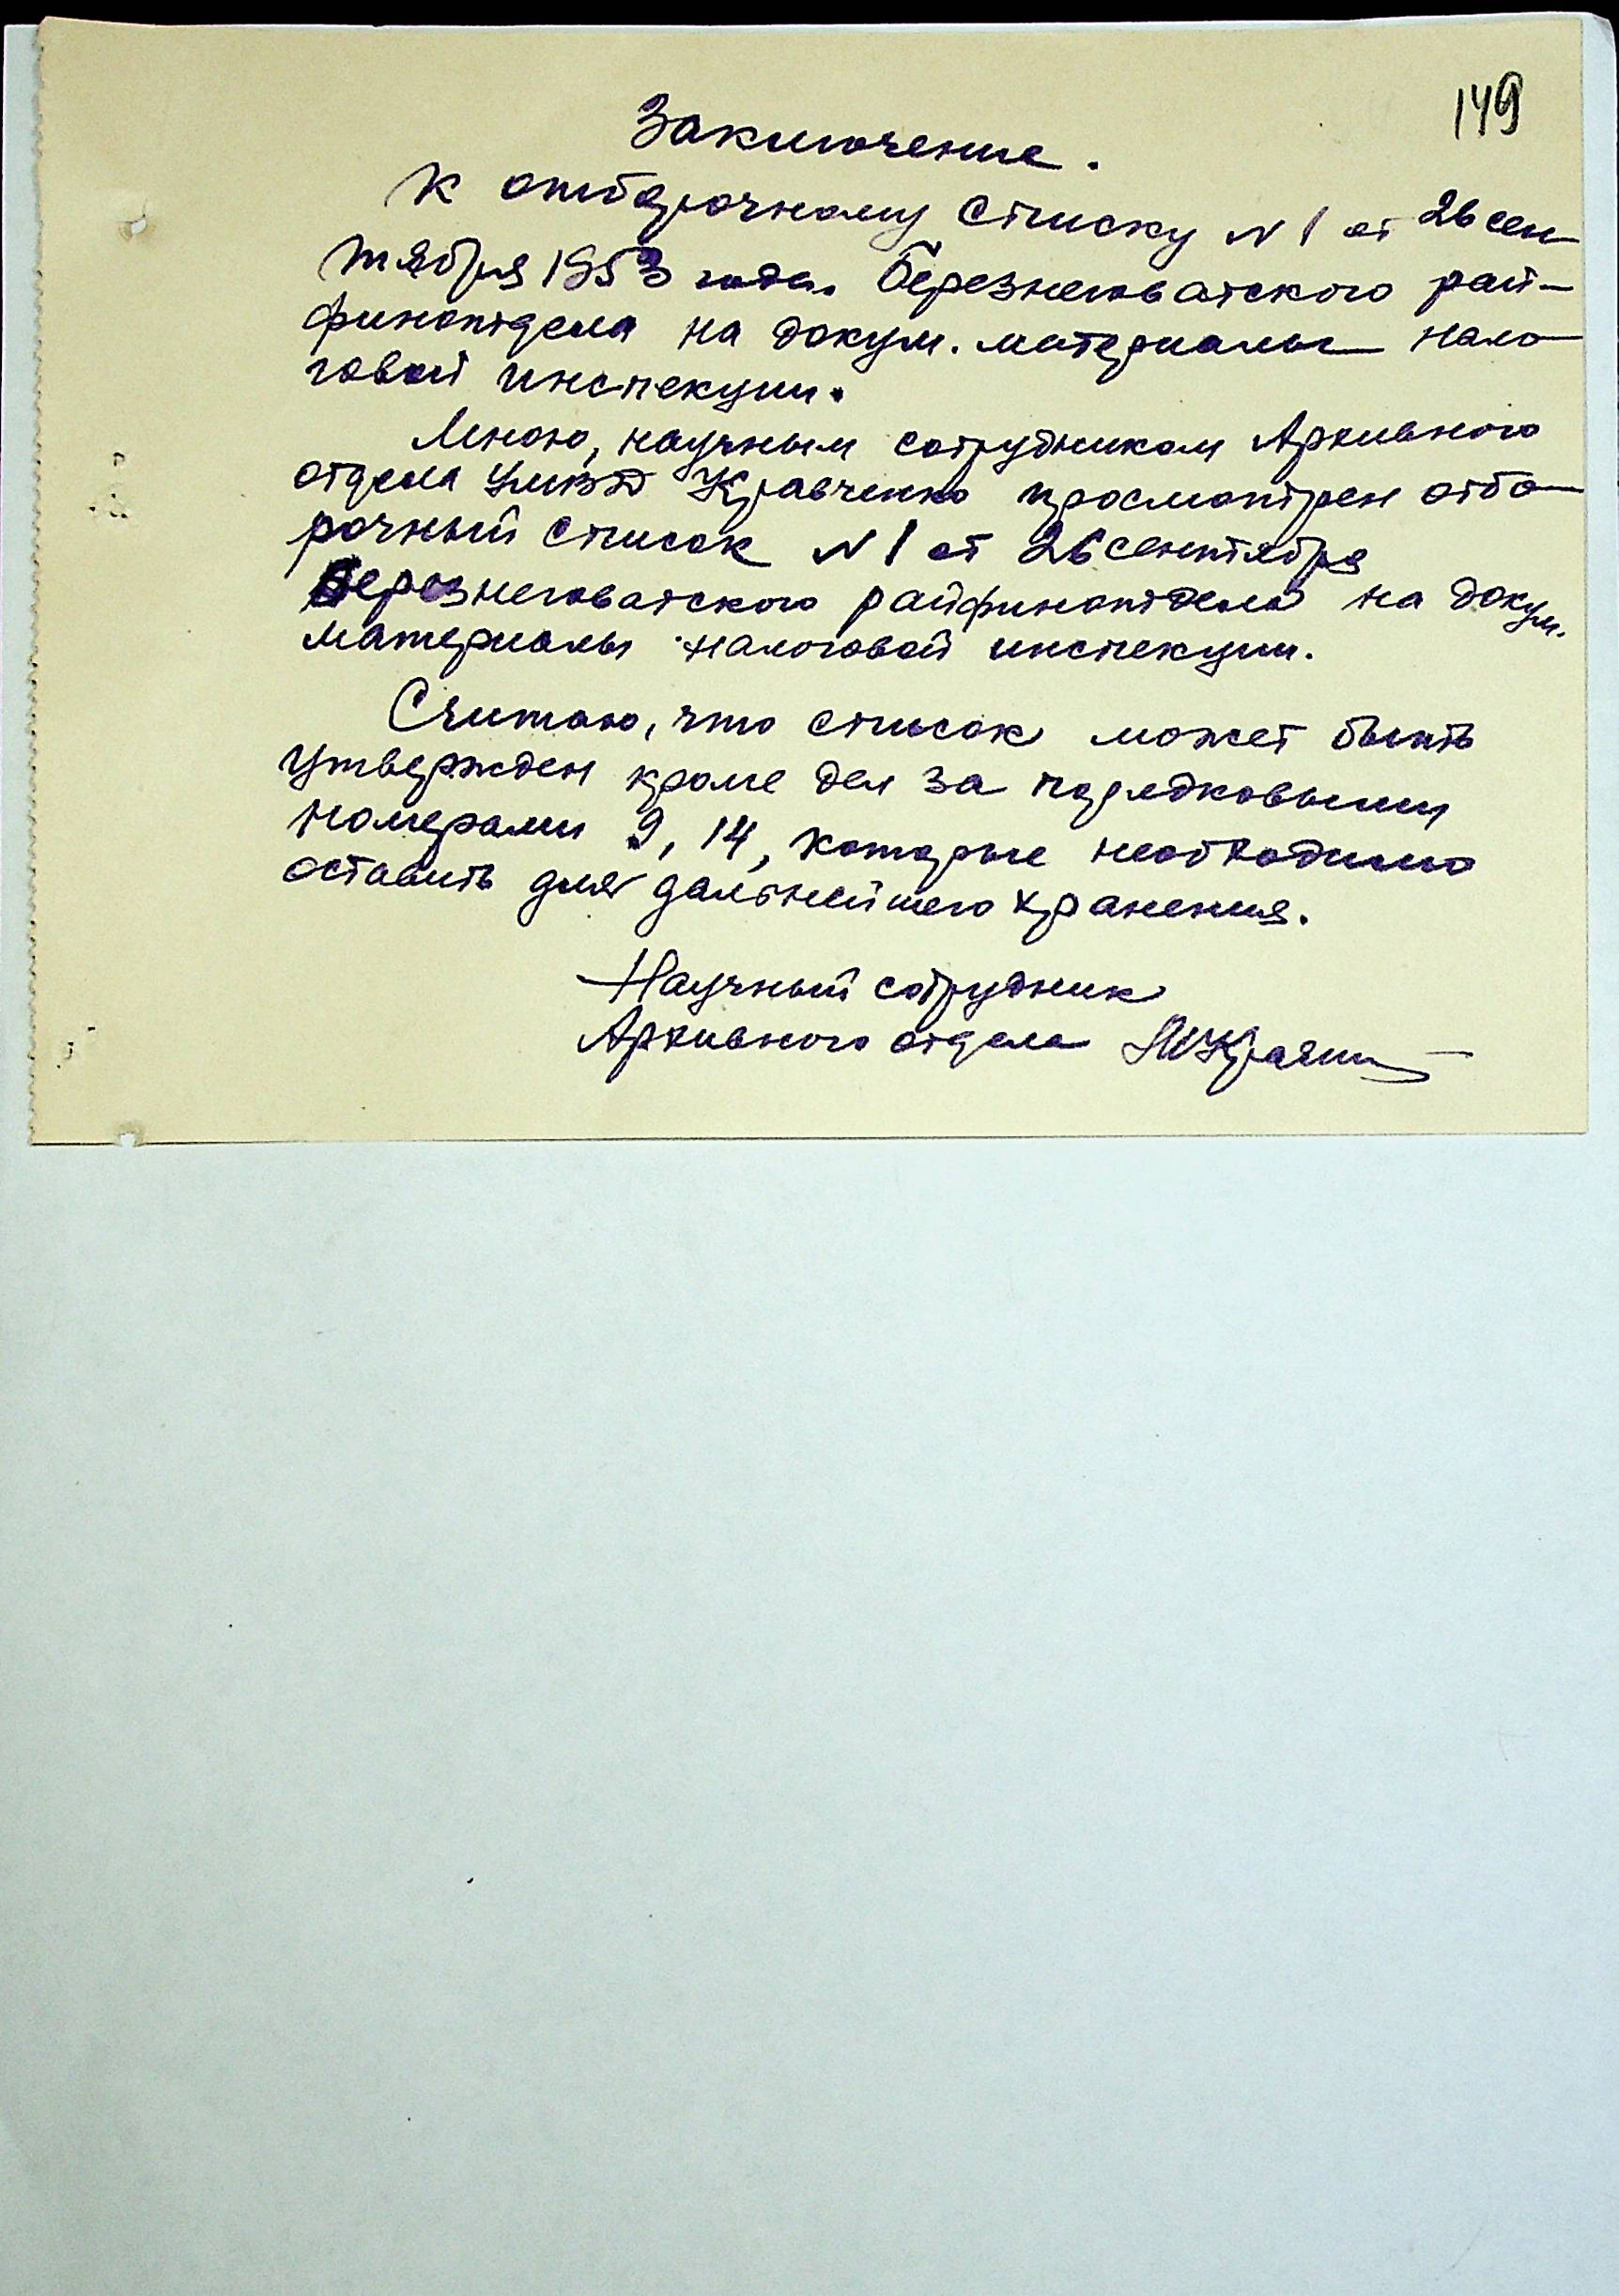 149
Заключение.
К отборочному списку N 1 от 26 сен-
тября 1953 года Березнеговатского рай-
финотдела на докум. материалы нало-
говой инспекции.
Мною, научным сотрудником Архивного
отдела УМВД Кравченко просмотрен отбо-
рочный список N 1 от 26 сентября
Березнеговатского райфинотдела на докум.
материалы налоговой инспекции.
Считаю, что список может быть
утвержден кроме дел за порядковыми
номерами 9, 14, которые необходимо
оставить для дальнейшего хранения.
Научный сотрудник
Архивного отдела